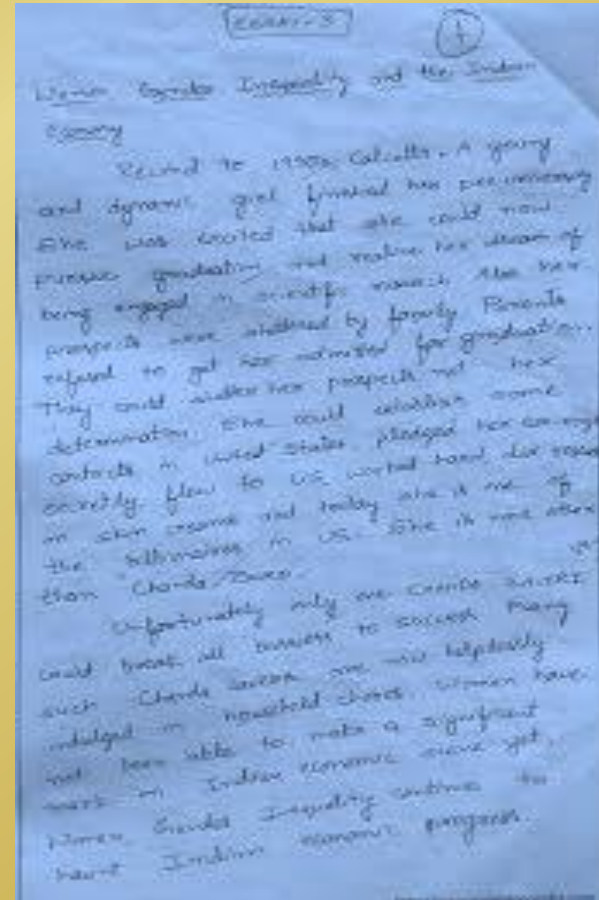 ESSAY-3
1
Women Gender Inequality and the Indian
Economy
Rewind to 1950s Calcutta. A young
and dynamic girl finished her pre-university
She was excited that she could now
pursue graduation and realise her dream of
being engaged in scientific research. Alas her
prospects were shattered by family. Parents
refused to get her admitted for graduation.
They could shatter her prospects not her
determination. She could establish some
contacts in United States, pledged her
secretly flew to US worked hard, did research
on skin and today she is one of
the billionaires in US. She is none other
than
Unfortunately only one
could break all barriers to succeed. Many
such are now helplessly
indulged in household chores. Women have
not been able to make a significant
mark in Indian economic scene yet.
Women Gender Inequality continue to
haunt Indian economic progress.